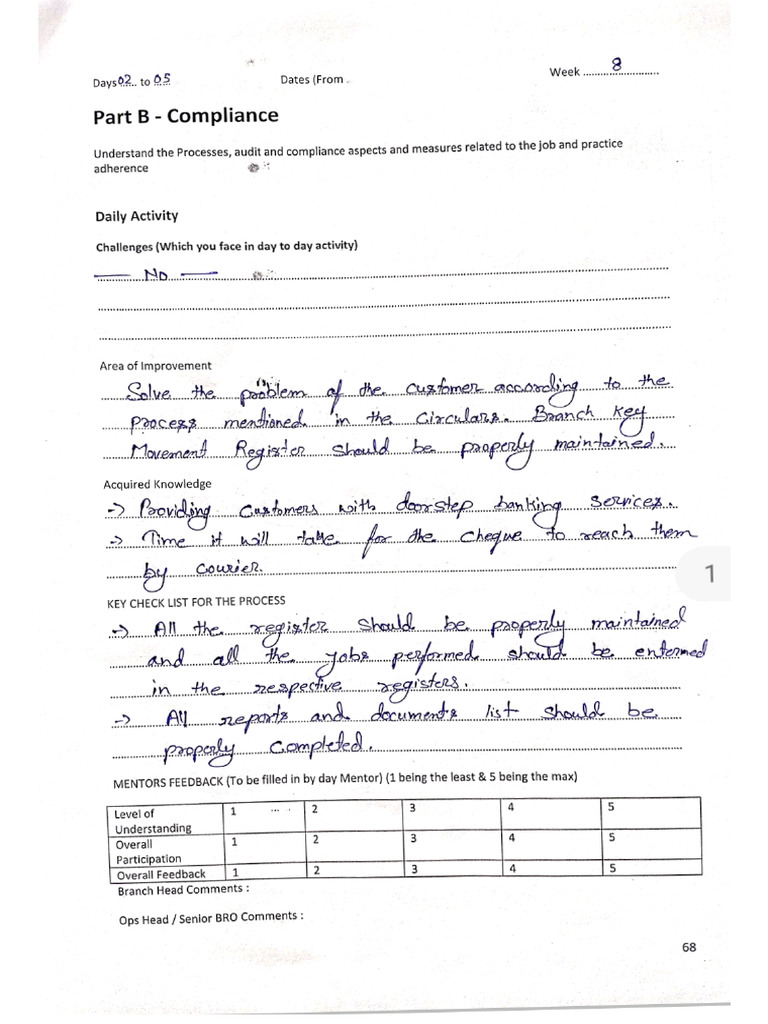 Week ........8........
Days 02 .. to 05 ..
Dates (From .
Part B - Compliance
Understand the Processes, audit and compliance aspects and measures related to the job and practice
adherence
Daily Activity
Challenges (Which you face in day to day activity)
— No —
Area of Improvement
Solve the problem of the customer according to the
process mentioned in the Circulars. Branch key
Movement Register should be properly maintained.
Acquired Knowledge
-> Providing customers with doorstep banking services.
-> Time it will take for the cheque to reach them
by courier.
KEY CHECK LIST FOR THE PROCESS
-> All the register should be properly maintained
and all the jobs performed should be entermed
in the respective registers.
-> All reports and documents list should be
properly Completed.
MENTORS FEEDBACK (To be filled in by day Mentor) (1 being the least & 5 being the max)
Level of Understanding 1 2 3 4 5
Overall Participation 1 2 3 4 5
Overall Feedback 1 2 3 4 5
Branch Head Comments :
Ops Head / Senior BRO Comments :
68
1